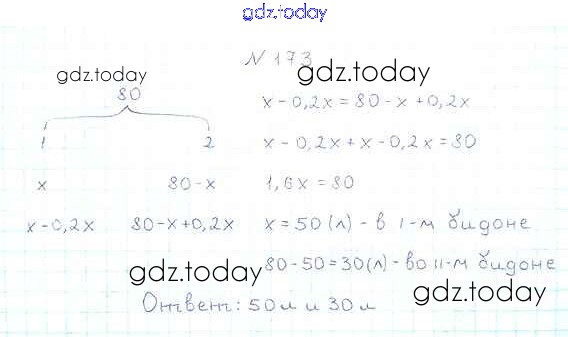 gdz.today
N 173
gdz.today
gdz.today
80
x - 0,2x = 80 - x + 0,2x
1 2
x - 0,2x + x - 0,2x = 80
x 80 - x
1,6x = 80
x - 0,2x 80 - x + 0,2x
x = 50 (л) - в I-м бидоне
80 - 50 = 30 (л) - во II-м бидоне
gdz.today
gdz.today
Ответ: 50 л и 30 л